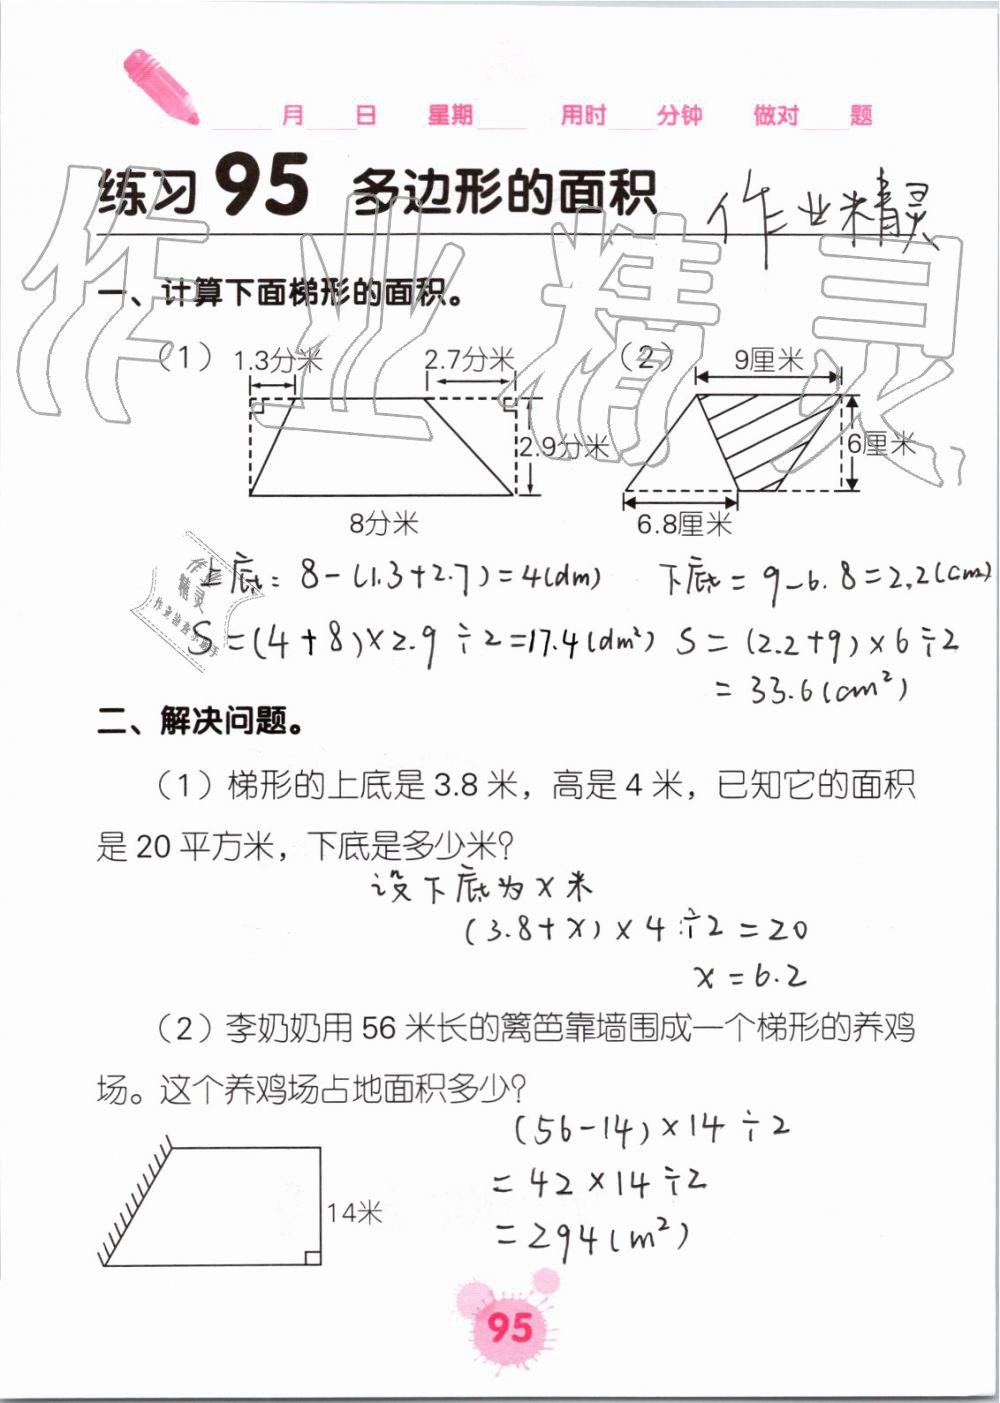 月 日 星期 用时 分钟 做对 题
练习 95 多边形的面积 作业精灵
作业精灵
一、计算下面梯形的面积。
(1) 1.3分米 2.7分米 2.9分米 8分米
(2) 9厘米 6厘米 6.8厘米
上底: 8-(1.3+2.7)=4(dm)
S=(4+8)×2.9÷2=17.4(dm²)
下底=9-6.8=2.2(cm)
S=(2.2+9)×6÷2
=33.6(cm²)
作业
精灵
二、解决问题。
(1)梯形的上底是 3.8 米，高是 4 米，已知它的面积
是 20 平方米，下底是多少米?
设下底为x米
(3.8+x)×4÷2=20
x=6.2
(2)李奶奶用 56 米长的篱笆靠墙围成一个梯形的养鸡
场。这个养鸡场占地面积多少?
14米
(56-14)×14÷2
=42×14÷2
=294(m²)
95